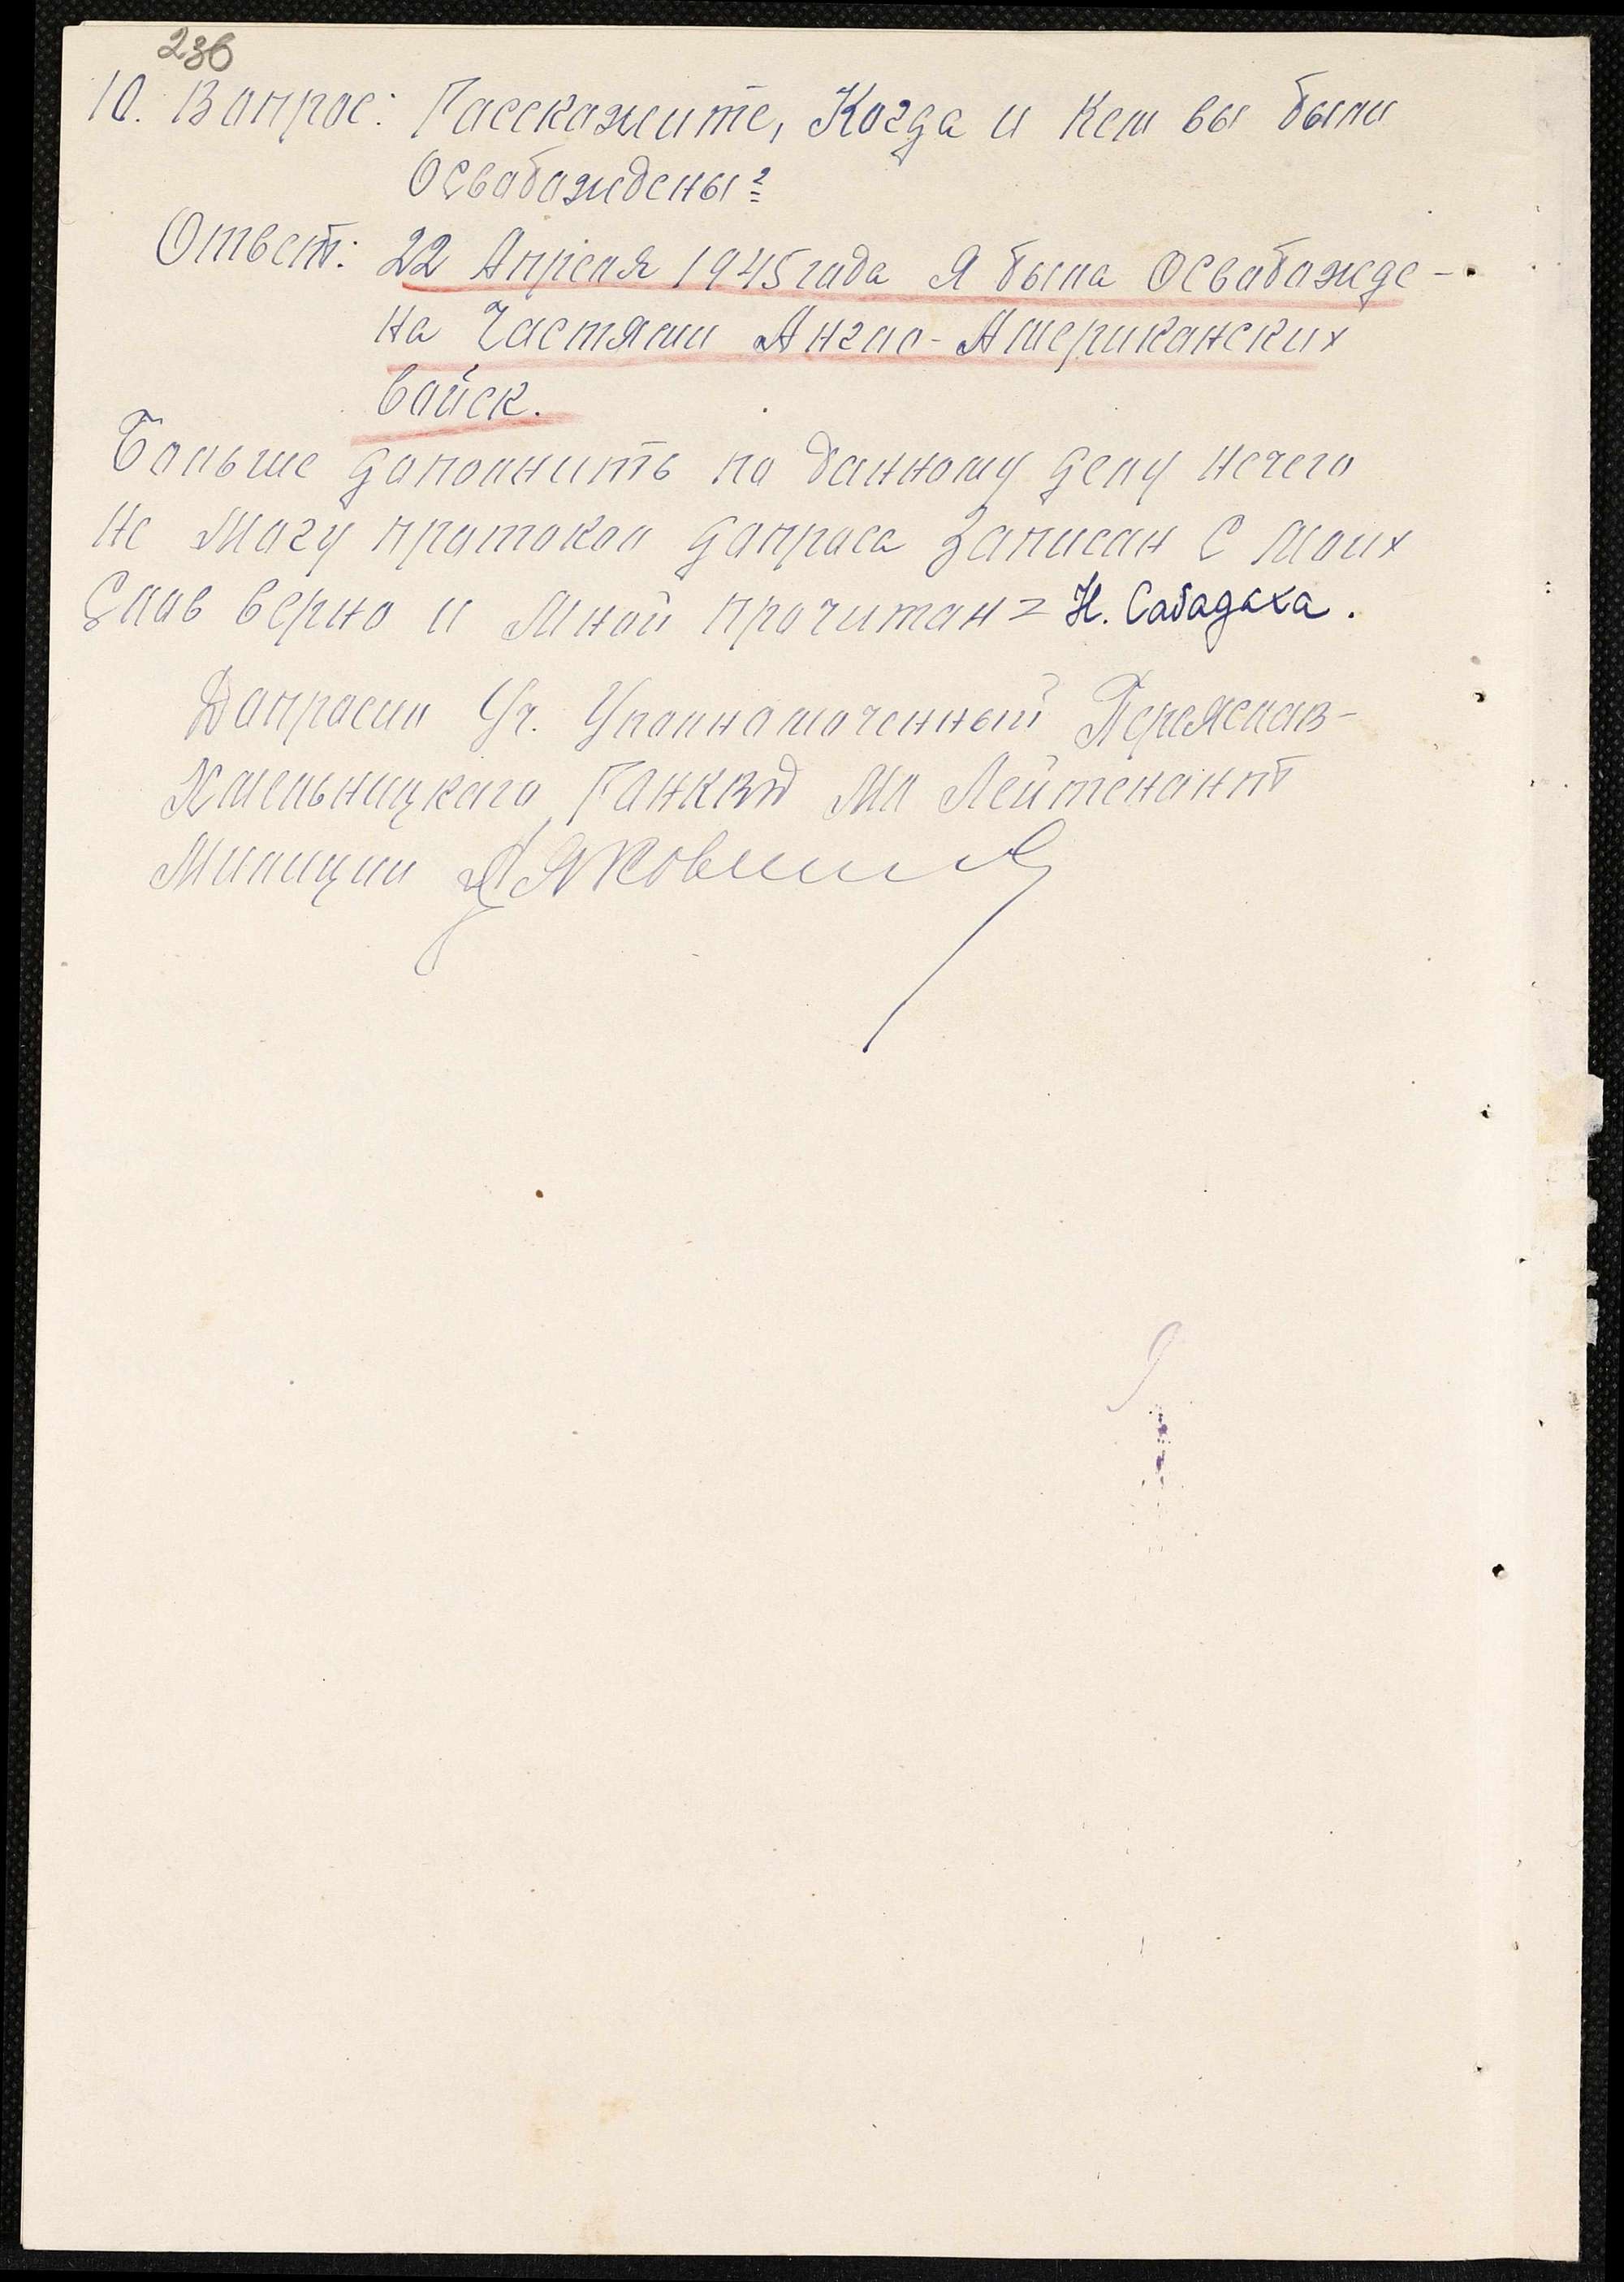 236
10. Вопрос: Расскажите, Когда и Кем вы были
Освобождены?
Ответ: 22 Апреля 1945 года Я была Освобожде-
на Частями Англо-Американских
войск.
Больше дополнить по данному делу нечего
не Могу протокол допроса Записан С Моих
Слов верно и Мной прочитан = Н. Сабадаха.
Допросил Уч. Уполномоченный Переяслав-
Хмельницкого РОНКВД Мл Лейтенант
Милиции